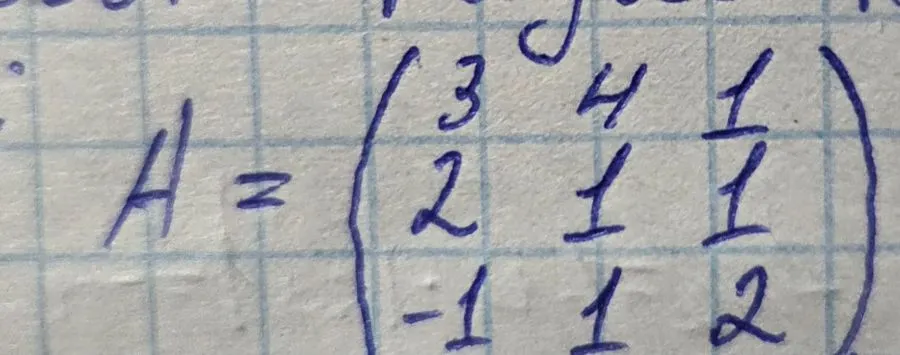 3 4 1
A = 2 1 1
-1 1 2